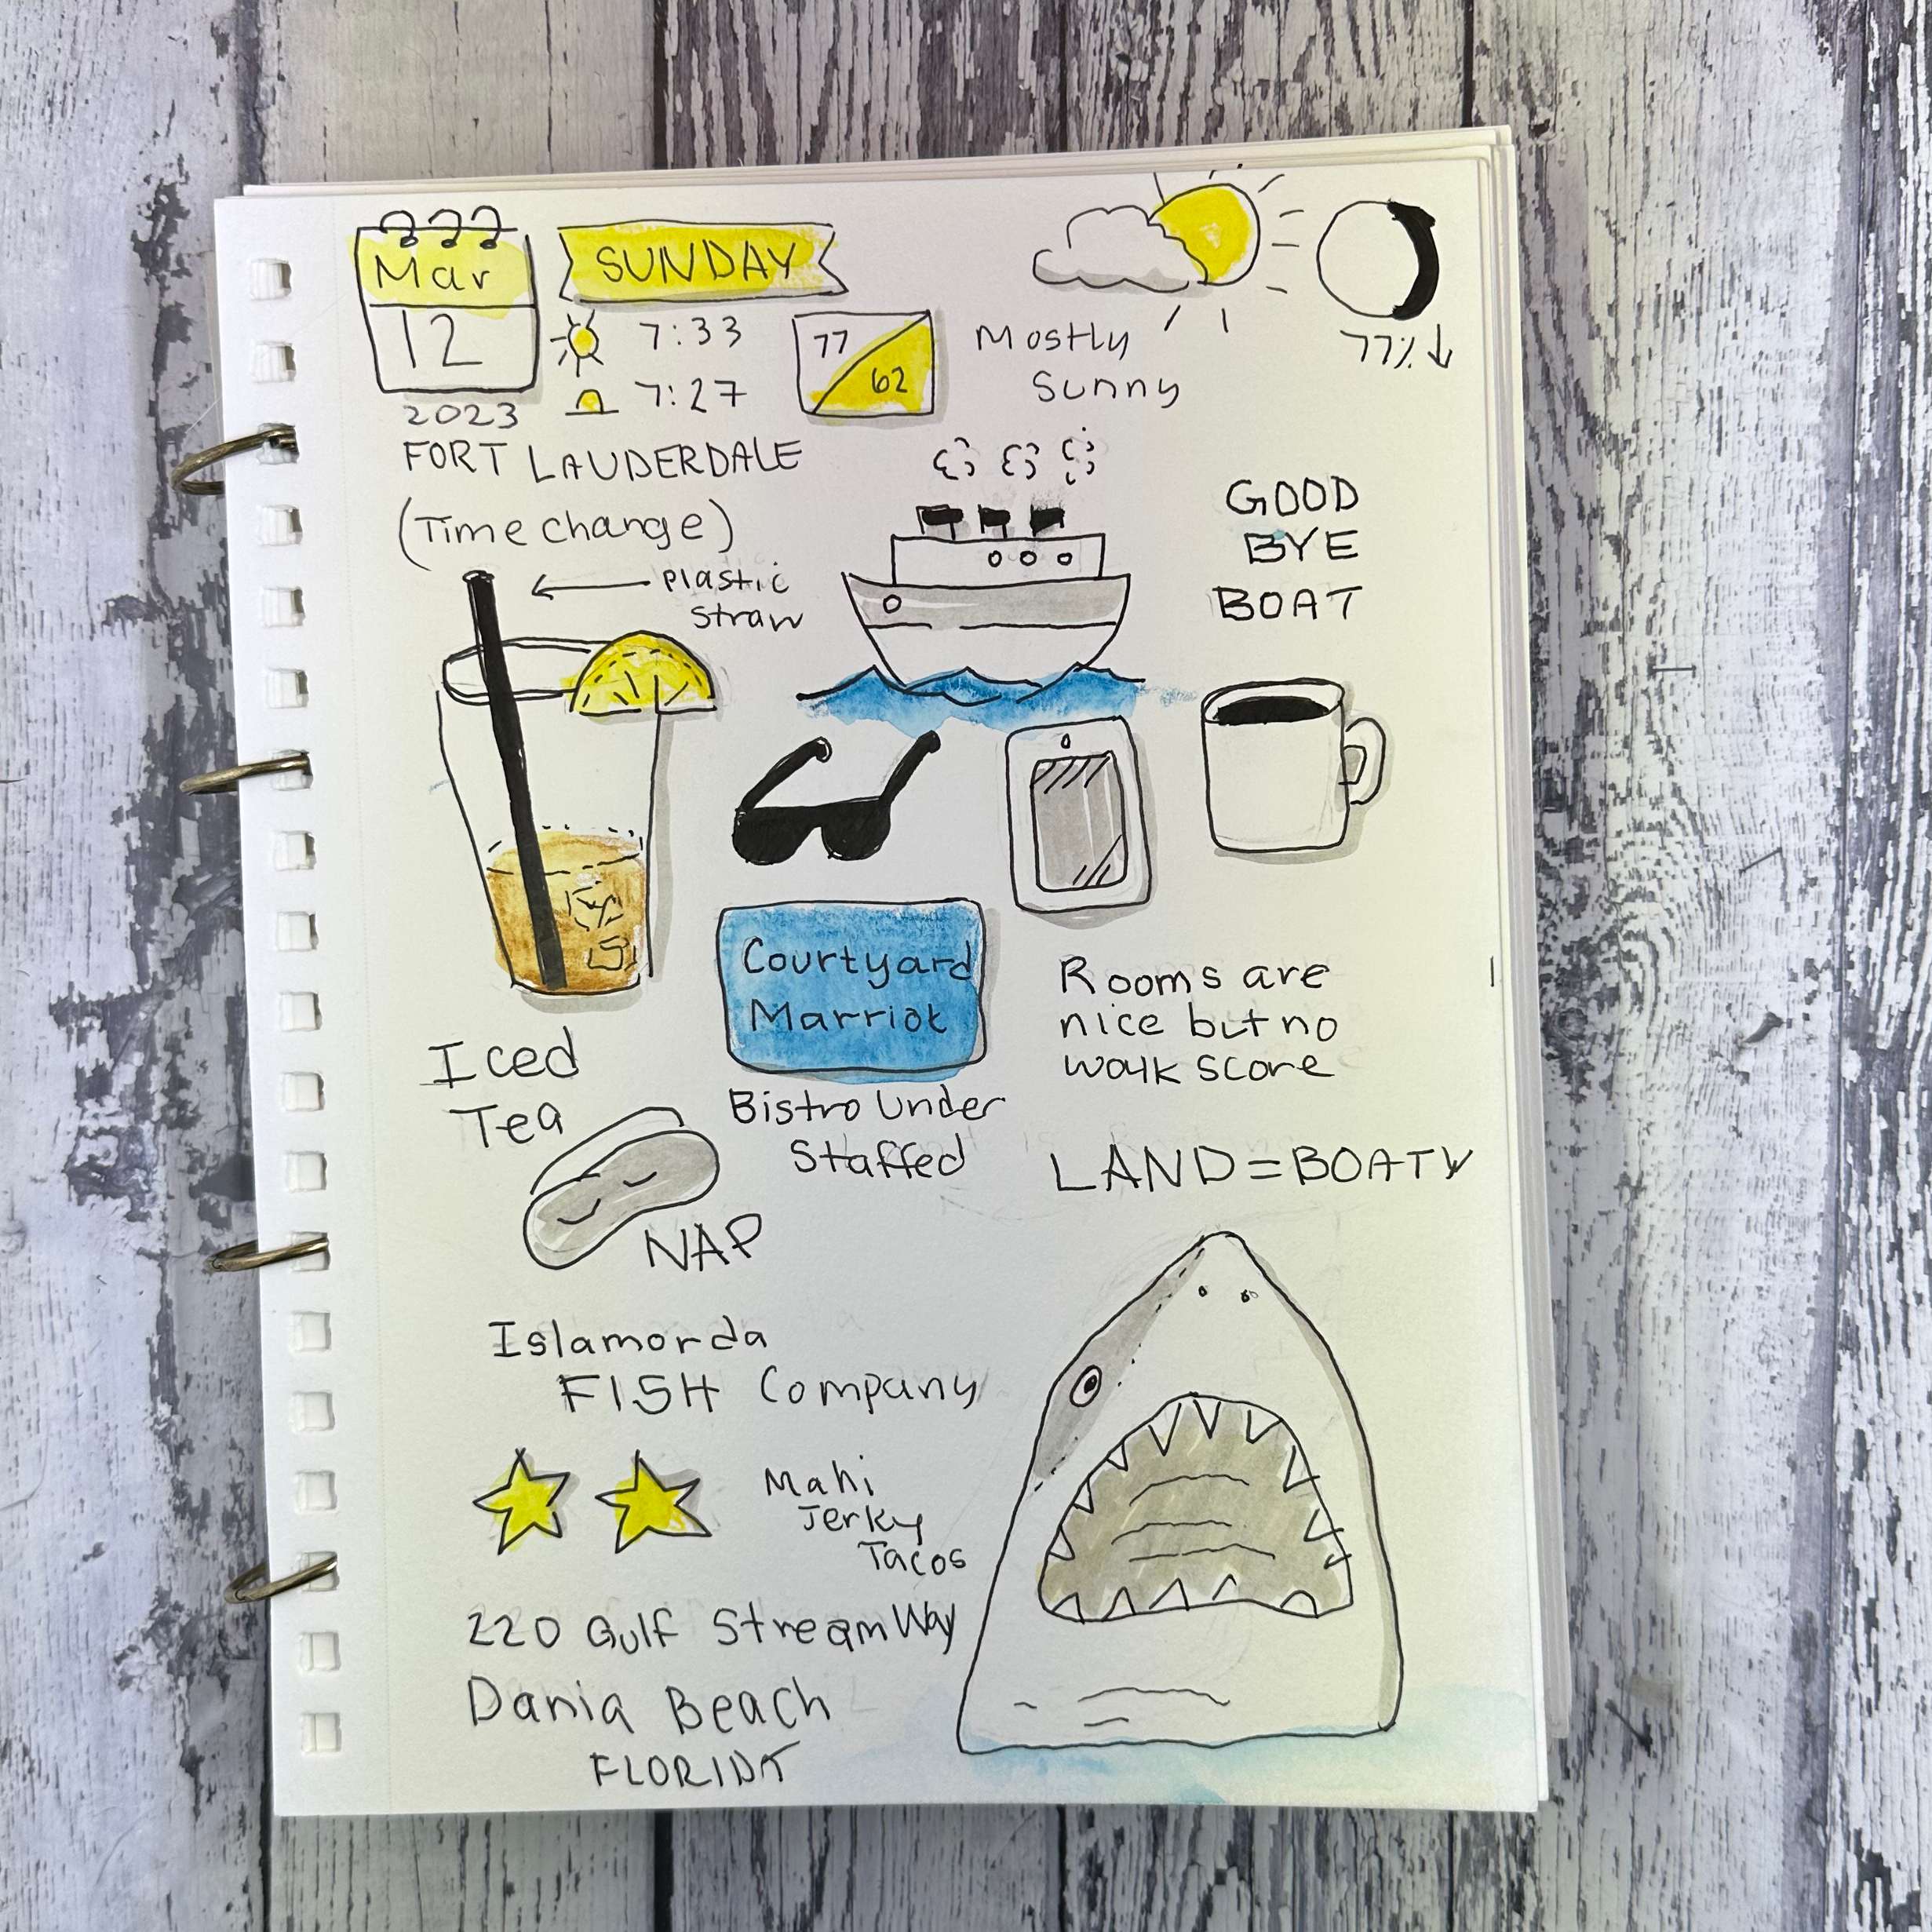 Mar
12
2023
SUNDAY
7:33
7:27
77
62
Mostly
Sunny
77%↓
FORT LAUDERDALE
(Time change)
← plastic
straw
GOOD
BYE
BOAT
Iced
Tea
Courtyard
Marriot
Bistro Under
Staffed
Rooms are
nice but no
walk score
LAND=BOATY
NAP
Islamorda
FISH Company
Mahi
Jerky
Tacos
220 Gulf Stream Way
Dania Beach
FLORIDA